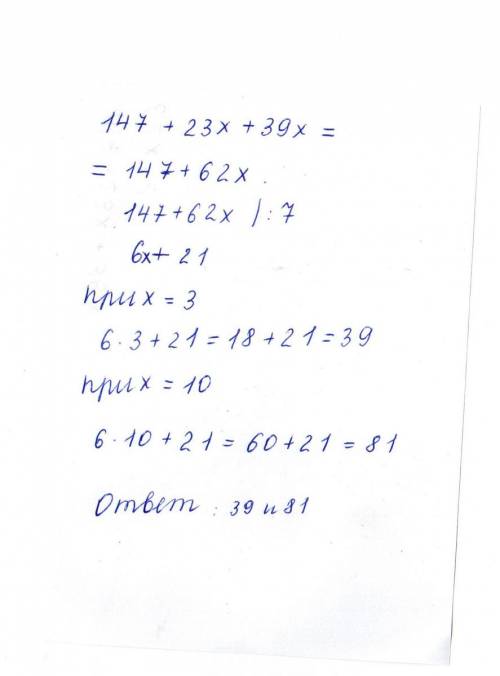 147 + 23x + 39x =
= 147 + 62x.
147 + 62x | : 7
6x + 21
при x = 3
6 · 3 + 21 = 18 + 21 = 39
при x = 10
6 · 10 + 21 = 60 + 21 = 81
Ответ : 39 и 81